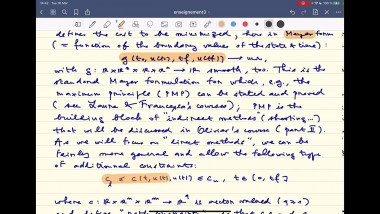 15:42 Tue 10 Mar
enseignement3
defines the cost to be minimized, here in Mayer form
(= function of the boundary values of the state & time):
g(t₀, x(t₀), tf, x(tf)) → min,
with g : R×Rⁿ×R×Rⁿ → R smooth, too. This is the
standard Mayer formulation for which, e.g., the
maximum principle (PMP) can be stated and proved
(see & Francesca's courses); PMP is the
building block of "indirect methods" (shooting...)
that will be discussed in Olivier's course (part II).
As we will focus on "direct methods", we can be
fairly more general and allow the following type
of additional constraints:
≤ c(t, x(t), u(t)) ≤ cu, t ∈ [0, tf]
where c : R×Rⁿ×Rᵐ → is vector valued